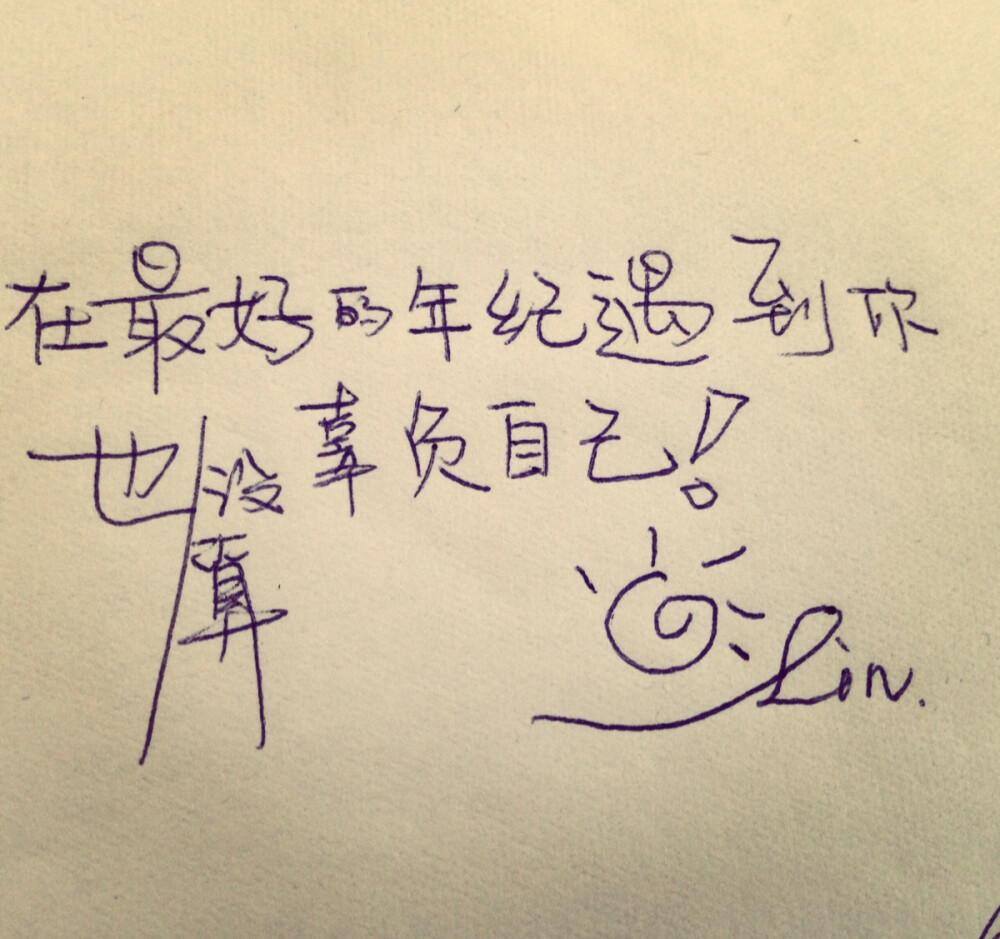 在最好的年纪遇到你
也算没辜负自己！
Lin.